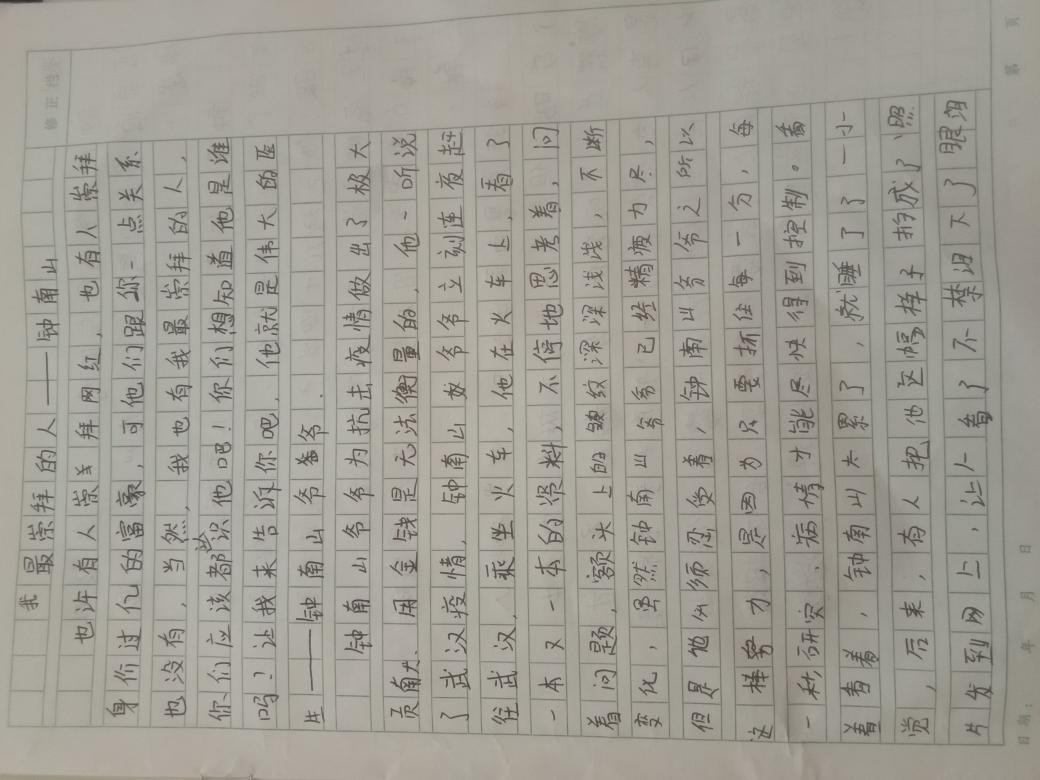 修正栏
第 页
我最崇拜的人——钟南山
也许有人崇拜网红,也有人崇拜
身价过亿的富豪,可他们跟你一点关系
也没有,当然,我也有我最崇拜的人,
你们应该都认识他吧!你们想知道他是谁
吗?让我来告诉你吧,他就是伟大的医
生——钟南山爷爷.
钟南山爷爷为抗击疫情做出了极大
贡献,用金钱是无法衡量的,他一听说
了武汉疫情,钟南山爷爷立刻连夜赶
往武汉,乘坐火车,他在火车上,看了
一本又一本的资料,不停地思考着,问
着问题,额头上的皱纹深深浅浅,不断
变化,虽然钟南山爷爷已经精疲力尽,
但是他必须忍受着,钟南山爷爷之所以
这样努力,是因为只要抓住每一分,每
一秒研究,病情才能尽快得到控制。看
着看着,钟南山太累了,就睡了了一小
觉,后来,有人把他这幅样子拍成了照
片发到网上,让人看了不禁泪下了眼泪
日期: 年 月 日